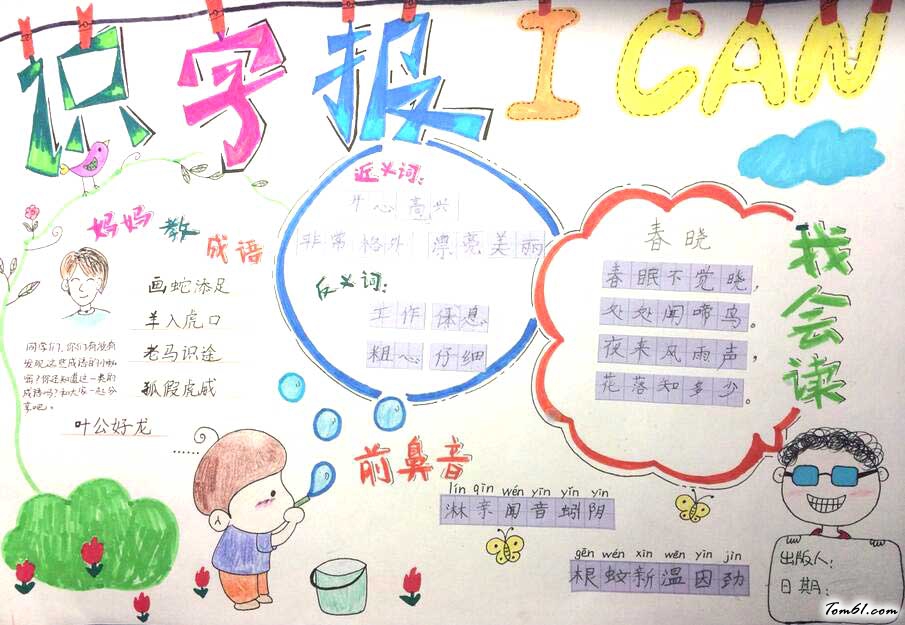 识字报 I CAN
妈妈教
成语
画蛇添足
羊入虎口
老马识途
狐假虎威
叶公好龙
......
同学们,你们有没有
发现这些成语的小秘
密?你还知道这一类的
成语吗?和大家一起分
享吧。
近义词:
开心 高兴
非常 格外 漂亮 美丽
反义词:
工作 休息
粗心 仔细
春晓
春眠不觉晓,
处处闻啼鸟。
夜来风雨声,
花落知多少。
我会读
前鼻音
lín qīn wén yīn yǐn yīn
淋亲闻音蚓阴
gēn wén xīn wēn yīn jìn
根蚊新温因劲
出版人:
日期:
Tom61.com